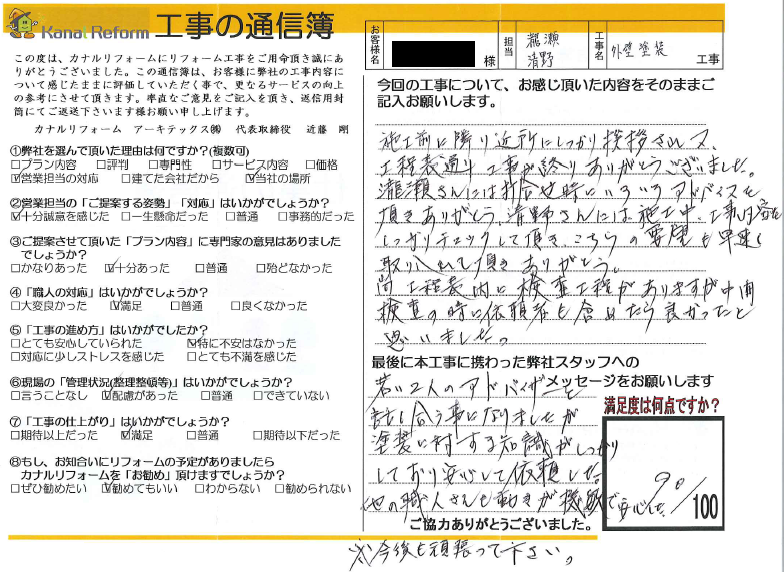 Kanal Reform 工事の通信簿
お客様名
様
担当
瀧瀬
清野
工事名
外壁塗装
工事
この度は、カナルリフォームにリフォーム工事をご用命頂き誠にあ
りがとうございました。この通信簿は、お客様に弊社の工事内容に
ついて感じたままに評価していただく事で、更なるサービスの向上
の参考にさせて頂きます。率直なご意見をご記入を頂き、返信用封
筒にてご返送下さいます様お願い申し上げます。
カナルリフォーム アーキテックス㈱ 代表取締役 近藤 剛
①弊社を選んで頂いた理由は何ですか?(複数可)
□プラン内容 □評判 □専門性 □サービス内容 □価格
☑営業担当の対応 □建てた会社だから ☑当社の場所
②営業担当の「ご提案する姿勢」「対応」はいかがでしょうか?
☑十分誠意を感じた □一生懸命だった □普通 □事務的だった
③ご提案させて頂いた「プラン内容」に専門家の意見はありました
でしょうか?
□かなりあった ☑十分あった □普通 □殆どなかった
④「職人の対応」はいかがでしょうか?
□大変良かった ☑満足 □普通 □良くなかった
⑤「工事の進め方」はいかがでしたか?
□とても安心していられた ☑特に不安はなかった
□対応に少しストレスを感じた □とても不満を感じた
⑥現場の「管理状況(整理整頓等)」はいかがでしょうか?
□言うことなし ☑配慮があった □普通 □できていない
⑦「工事の仕上がり」はいかがでしょうか?
□期待以上だった ☑満足 □普通 □期待以下だった
⑧もし、お知合いにリフォームの予定がありましたら
カナルリフォームを「お勧め」頂けますでしょうか?
□ぜひ勧めたい ☑勧めてもいい □わからない □勧められない
今回の工事について、お感じ頂いた内容をそのままご
記入お願いします。
施工前に隣り近所にしっかり挨拶され又、
工程表通り工事が終りありがとうございました。
瀧瀬さんには打合せ時にいろいろアドバイスを
頂きありがとう。清野さんには施工中、工事内容を
しっかりチェックして頂き、こちらの要望も早速
取り入れて頂きありがとう。
尚工程表内に検査工程がありますが中間
検査の時に依頼者も含めたら良かったと
思いました。
最後に本工事に携わった弊社スタッフへの
メッセージをお願いします
若い2人のアドバイザーと
話し合う事になりましたが
塗装に対する知識がしっかり
しており安心して依頼した。
他の職人さんも動きが機敏で安心した
満足度は何点ですか?
90/100
ご協力ありがとうございました。
今後も頑張って下さい。